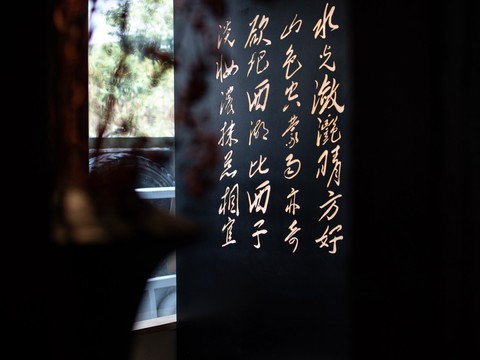 水光潋滟晴方好
山色空蒙雨亦奇
欲把西湖比西子
淡妆浓抹总相宜